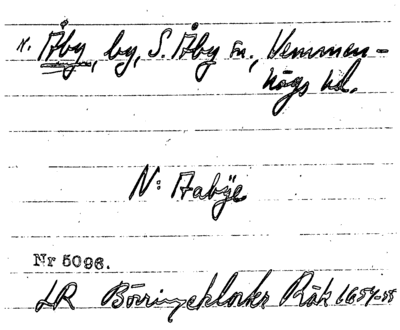 N. Åby, by, S. Åby sn., Vemmen-
högs hd.
N: Aabÿe
Nr 5096.
LR Börringekloster Räk 1657-58